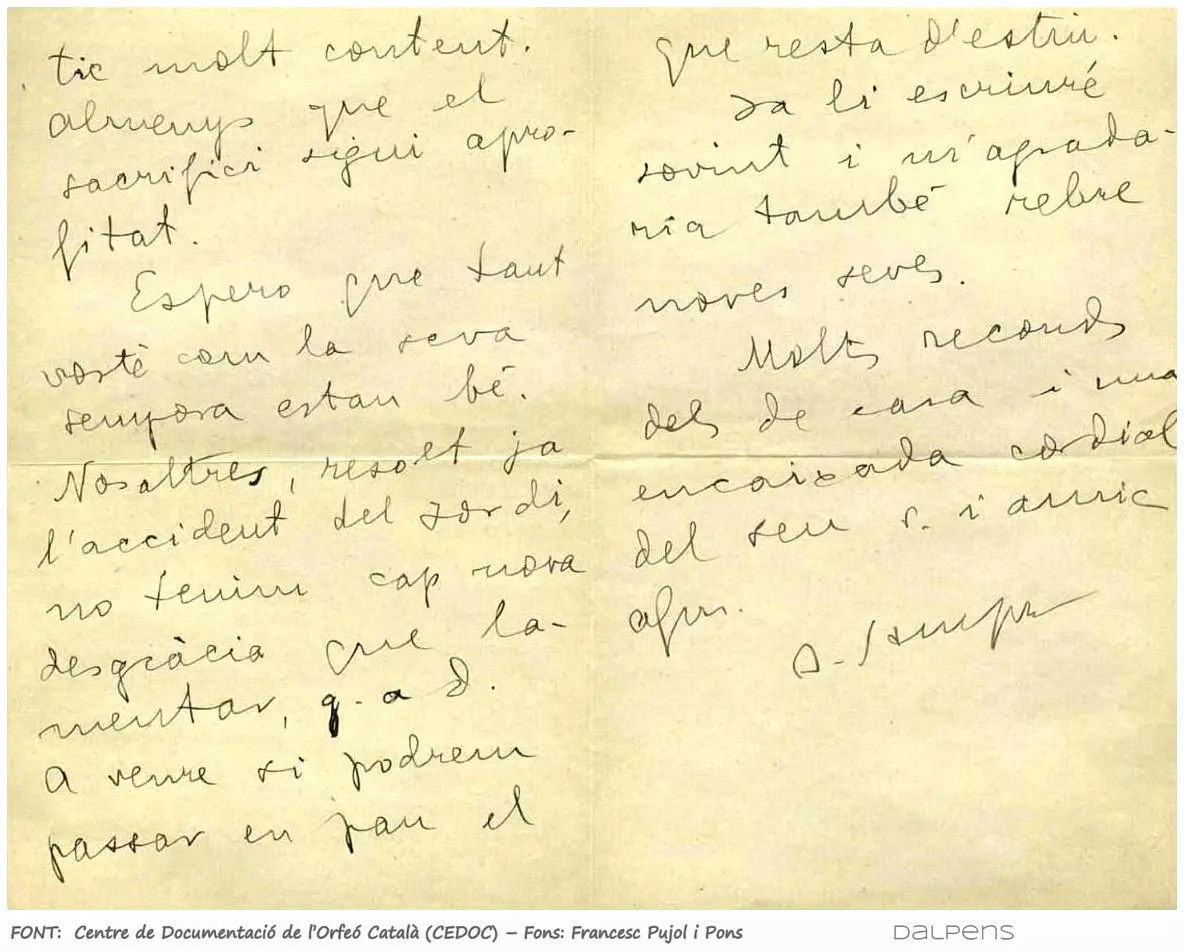 tic molt content.
almenys que el
sacrifici sigui apro-
fitat.
Espero que tant
vostè com la seva
senyora estan bé.
Nosaltres, resolt ja
l'accident del Jordi,
no tenim cap nova
desgràcia que la-
mentar, g. a D.
A veure si podrem
passar en pau el
que resta d'estiu.
Ja li escriuré
sovint i m'agrada-
ria també rebre
noves seves.
Molts records
dels de casa i una
encaixada cordial
del seu s. i amic
afm.
FONT: Centre de Documentació de l'Orfeó Català (CEDOC) – Fons: Francesc Pujol i Pons
DALPENS